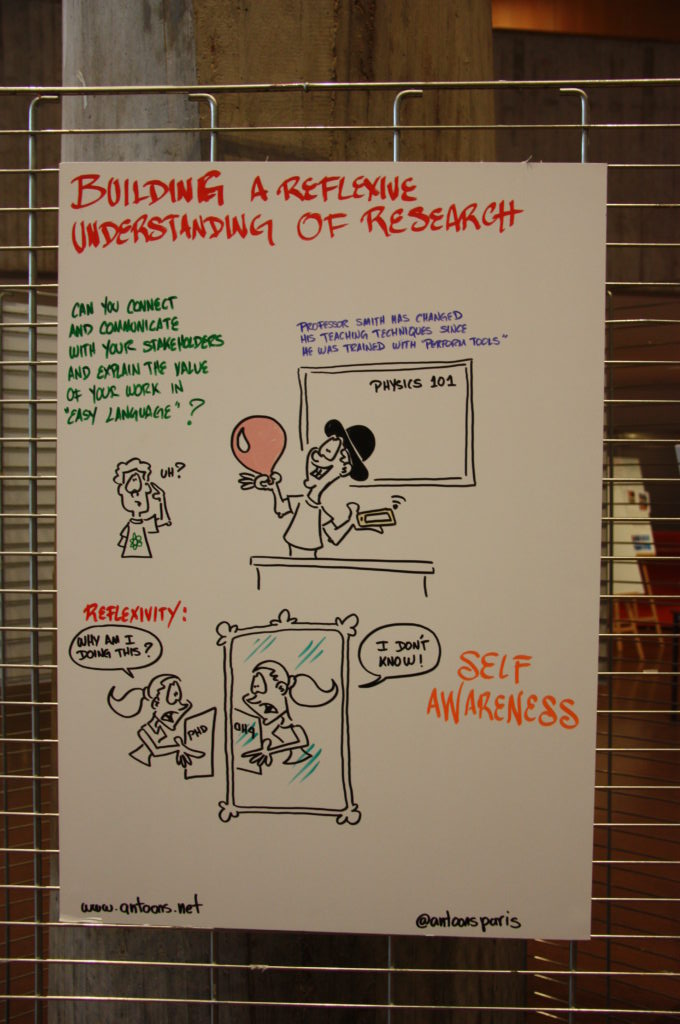 BUILDING A REFLEXIVE
UNDERSTANDING OF RESEARCH
CAN YOU CONNECT
AND COMMUNICATE
WITH YOUR STAKEHOLDERS
AND EXPLAIN THE VALUE
OF YOUR WORK IN
"EASY LANGUAGE" ?
PROFESSOR SMITH HAS CHANGED
HIS TEACHING TECHNIQUES SINCE
HE WAS TRAINED WITH "PERFORM TOOLS"
PHYSICS 101
UH?
REFLEXIVITY:
WHY AM I
DOING THIS?
I DON'T
KNOW!
PHD
PHD
SELF
AWARENESS
www.antoons.net
@antoonsparis